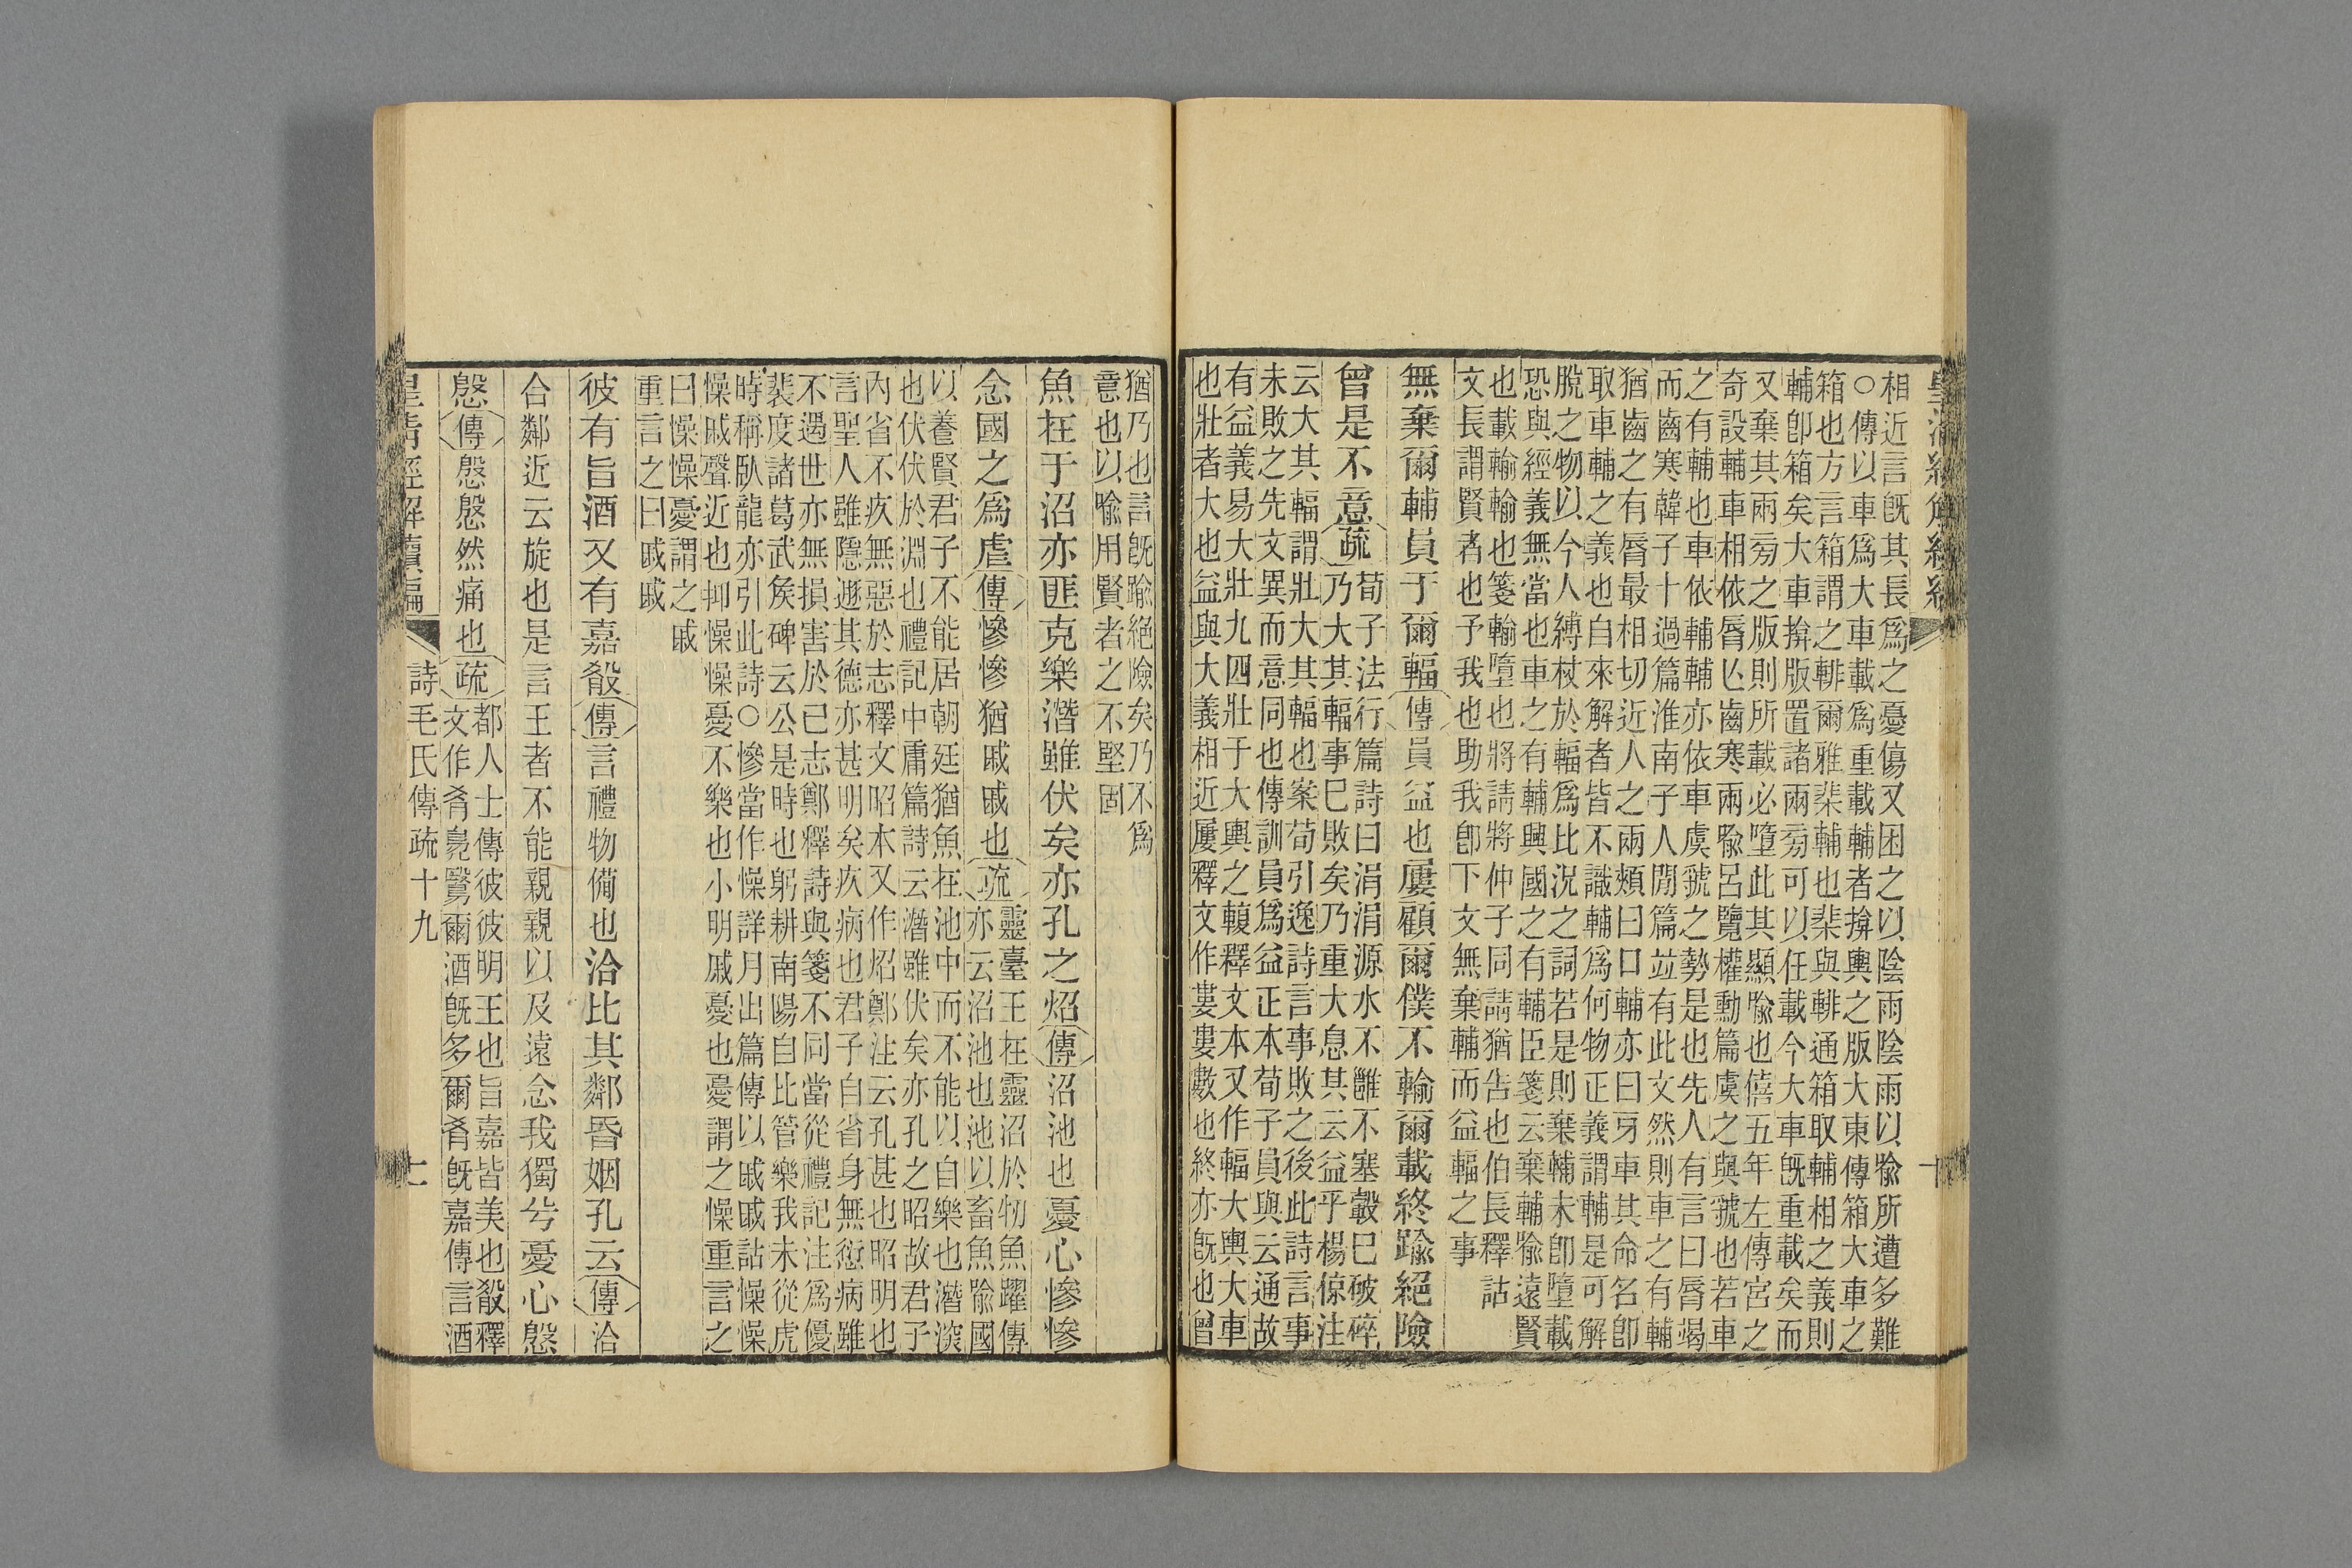 皇清經解續編
十
相近言旣其長爲之憂傷又困之以陰雨陰雨以喻所遭多難
○傳以車爲大車載爲重載輔者揜輿之版大東傳箱大車之
箱也方言箱謂之輫爾雅棐輔也棐與輫通箱取輔相之義則
輔卽箱矣大車揜版置諸兩旁可以任載今大車旣重載矣而
又棄其兩旁之版則所載必墮此其顯喻也僖五年左傳宮之
奇設輔車相依脣亾齒寒兩喻呂覽權勳篇虞之與虢也若車
之有輔也車依輔輔亦依車虞虢之勢是也先人有言曰脣竭
而齒寒韓子十過篇淮南子人閒篇竝有此文然則車之有輔
猶齒之有脣最相切近人之兩頰曰口輔亦曰牙車其命名卽
取車輔之義也自來解者皆不識輔爲何物正義謂輔是可解
脫之物以今人縛杖於輻爲比況之詞若是則棄輔未卽墮載
恐與經義無當也車之有輔興國之有輔臣箋云棄輔喻遠賢
也載輸輸也箋輸墮也將請將仲子同請猶告也伯長釋詁
文長謂賢者也予我也助我卽下文無棄輔而益輻之事
無棄爾輔員于爾輻傳員益也屢顧爾僕不輸爾載終踰絕險
曾是不意疏荀子法行篇詩曰涓涓源水不雝不塞轂巳破碎
乃大其輻事巳敗矣乃重大息其云益乎楊倞注
云大其輻謂壯大其輻也案荀引逸詩言事敗之後此詩言事
未敗之先文異而意同也傳訓員爲益正本荀子員與云通故
有益義易大壯九四壯于大輿之輹釋文本又作輻大輿大車
也壯者大也益與大義相近屢釋文作婁婁數也終亦旣也曾
猶乃也言旣踰絕險矣乃不爲
意也以喻用賢者之不堅固
魚在于沼亦匪克樂潛雖伏矣亦孔之炤傳沼池也憂心慘慘
念國之爲虐傳慘慘猶戚戚也疏靈臺王在靈沼於牣魚躍傳
亦云沼池也池以畜魚喻國
以養賢君子不能居朝廷猶魚在池中而不能以自樂也潛深
也伏伏於淵也禮記中庸篇詩云潛雖伏矣亦孔之昭故君子
內省不疚無惡於志釋文昭本又作炤鄭注云孔甚也昭明也
言聖人雖隱遯其德亦甚明矣疚病也君子自省身無愆病雖
不遇世亦無損害於己志鄭釋詩與箋不同當從禮記注爲優
裴度諸葛武矦碑云公是時也躬耕南陽自比管樂我未從虎
時稱臥龍亦引此詩○慘當作懆詳月出篇傳以戚戚詁懆懆
懆戚聲近也抑懆懆憂不樂也小明戚憂也憂謂之懆重言之
曰懆懆憂謂之戚
重言之曰戚戚
彼有旨酒又有嘉殽傳言禮物備也洽比其鄰昏姻孔云傳洽
合鄰近云旋也是言王者不能親親以及遠念我獨兮憂心慇
慇傳慇慇然痛也疏都人士傳彼彼明王也旨嘉皆美也殽釋
文作肴鳧鷖爾酒旣多爾肴旣嘉傳言酒
皇清經解續編
詩毛氏傳疏十九
七